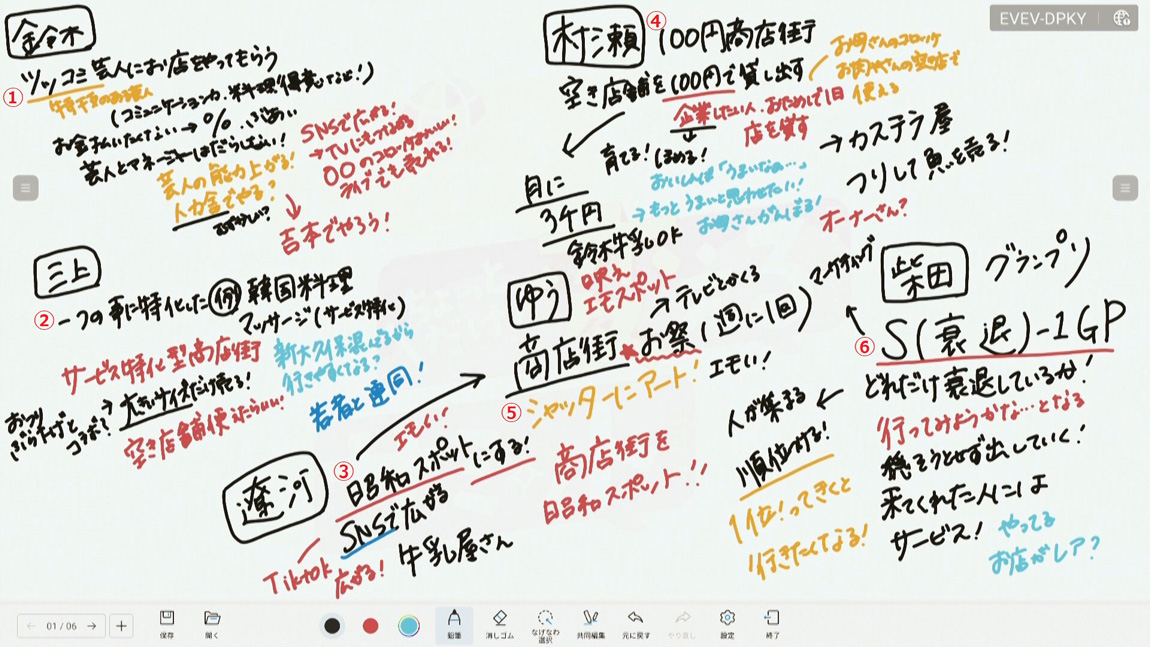 EVEV-DPKY
鈴木
①
ツッコミ芸人にお店をやってもらう
牛乳のお客人
(コミュニケーション力、料理得意など!)
お金払いたくない→%
芸人とマネージャーはだらしない!
芸人の能力上がる!
人力舎でやる?
むずかしい?
SNSで広がる!
→TVにもつながる
〇〇のコロッケおいしい!
ライブでも売れる!
吉本でやろう!
④
村瀬
100円商店街
空き店舗を100円で貸し出す
お母さんのコロッケ
お肉やさんの空き店で
使える
企業したい人、おためしで1日
店を貸す
育てる! ほめる!
月に
3千円
鈴木牛乳OK
おじいさんは「うまいなぁ…」
→もっとうまいと思わせたい!
お母さんがんばる!
→カステラ屋
つりして魚を売る!
オーナーさん?
三上
②
一つの事に特化した 例 韓国料理
マッサージ(サービス特化)
サービス特化型商店街
→大きいサイズだけ売る!
コラボで?
空き店舗使えたらいい!
新大久保混んでるから
行きやすくなる?
若者と連同!
⑤
ゆう
映え
エモスポット
→テレビとかくる
商店街★お祭(週に1回)
シャッターにアート!
エモい!
商店街を
昭和スポット!!
マーケティング
⑥
柴田
グランプリ
S(衰退)-1GP
どれだけ衰退しているか!
行ってみようかな…となる
穂そうとせず出していく!
来てくれた人には
サービス!
やってる
お店がレア?
人が集まる
順位つける!
1位!ってきくと
行きたくなる!
③
遼河
エモい!
昭和スポットにする!
SNSで広がる
牛乳屋さん
Tiktok
広がる!
01 / 06
保存
開く
鉛筆
消しゴム
なげなわ
選択
共同編集
元に戻す
やり直し
設定
終了